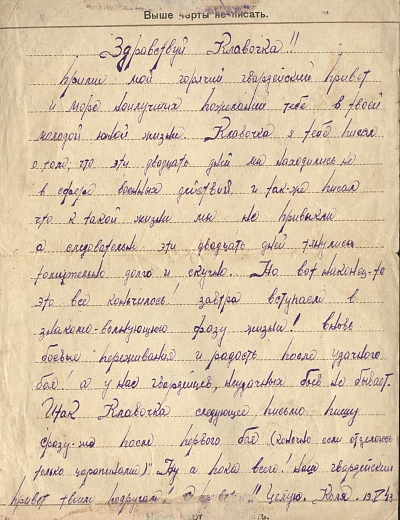 Выше черты не писать.
Здравствуй Клавочка!!
Прими мой горячий гвардейский привет
и море наилучших пожеланий тебе в твоей
молодой юной жизни. Клавочка я тебе писал
о том, что эти двадцать дней мы находились не
в сфере военных действий, и так-же писал
что к такой жизни мы не привыкли
а следовательно эти двадцать дней тянулись
томительно долго и скучно. Но вот наконец-то
это все кончилось! завтра вступаем в
знакомо-волнующую фразу жизни! вновь
боевые переживания и радость после удачного
боя! а у нас гвардейцев, неудачных боев не бывает.
Итак Клавочка следующее письмо пишу
сразу-же после первого боя (конечно если отделаюсь
только царапинами)" Ну а пока всего! наш гвардейский
привет твоим подругам! !! Целую. Коля. 43